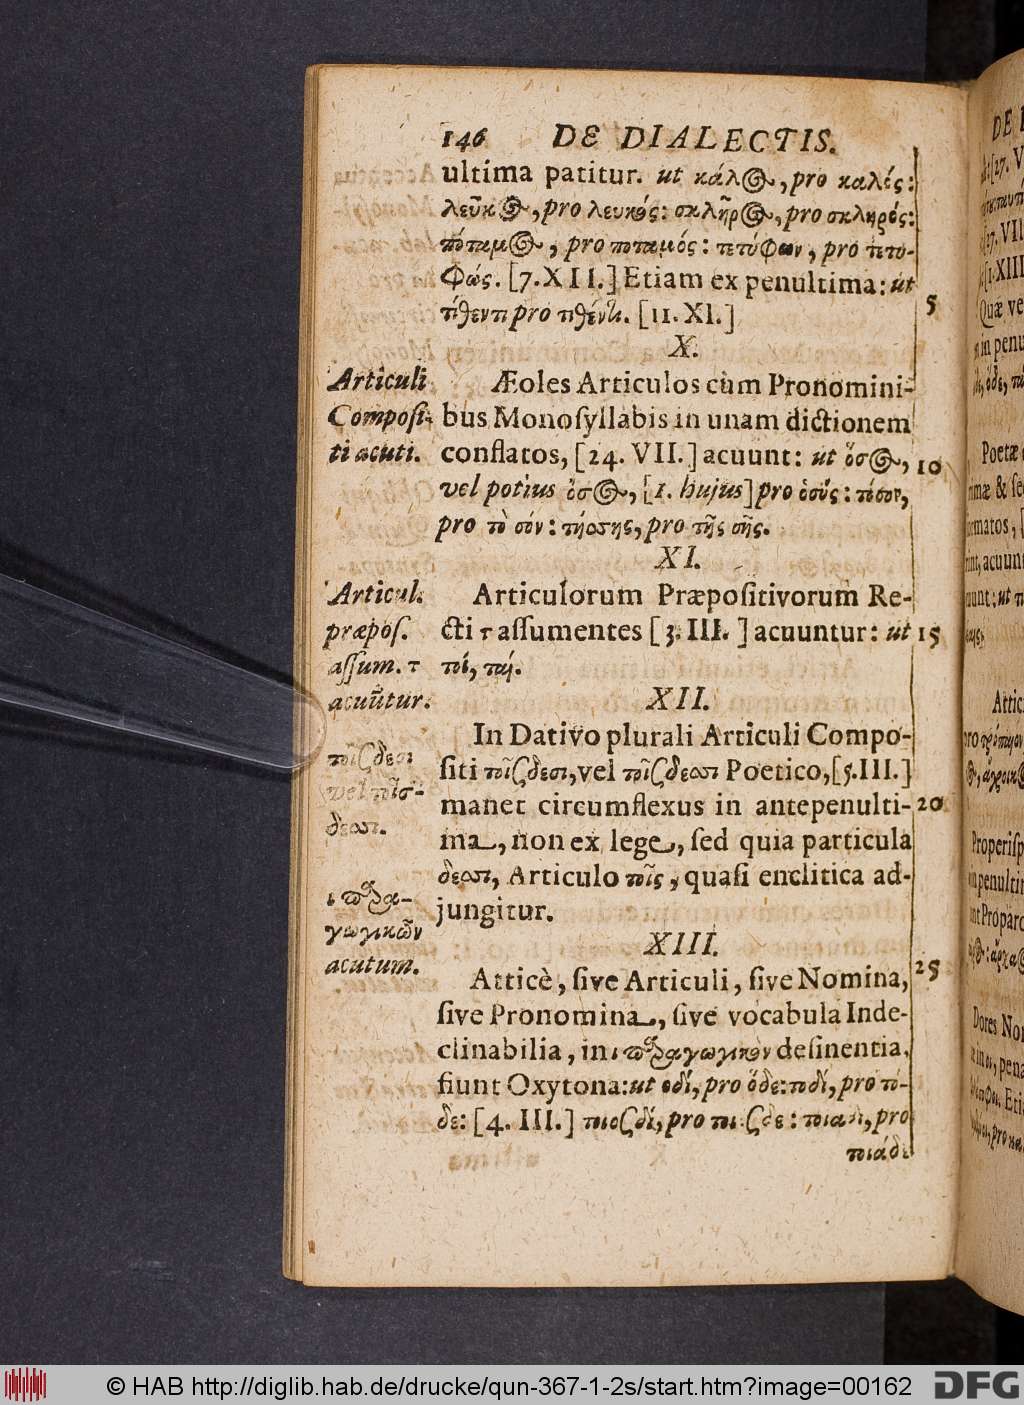 146 DE DIALECTIS.
ultima patitur. ut κάλος, pro καλός:
λεῦκος, pro λευκός: σκλῆρος, pro σκληρός:
πόταμος, pro ποταμός: τετύφων, pro τετυ-
φώς. [7. XII.] Etiam ex penultima: ut
τίθεντι pro τιθέντι. [11. XI.]
5
X.
Articuli
Composi-
ti acuti.
Æoles Articulos cùm Pronomini-
bus Monosyllabis in unam dictionem
conflatos, [24. VII.] acuunt: ut ὅσος,
10
vel potius ὄσος, [1. hujus] pro ὁ σός: τόσον,
pro τὸ σόν: τήσσης, pro τῆς σῆς.
XI.
Articul.
præpos.
assum. τ
acuūtur.
Articulorum Præpositivorum Re-
cti τ assumentes [3. III.] acuuntur: ut
15
τοί, ταί.
XII.
τοῖσδεσι
vel τοῖσ-
δεσσι.
In Dativo plurali Articuli Compo-
siti τοῖσδεσι, vel τοῖσδεσσι Poetico, [5. III.]
manet circumflexus in antepenulti-
20
ma, non ex lege, sed quia particula
δεσσι, Articulo τοῖς, quasi enclitica ad-
jungitur.
XIII.
ι παρα-
γωγικῶν
acutum.
Atticè, sive Articuli, sive Nomina,
25
sive Pronomina, sive vocabula Inde-
clinabilia, in ι παραγωγικὸν desinentia,
fiunt Oxytona: ut ὁδί, pro ὅδε: τοδί, pro τό-
δε: [4. III.] τοιοσδί, pro τοιόσδε: τοιαδί, pro
τοιάδε
DE
© HAB http://diglib.hab.de/drucke/qun-367-1-2s/start.htm?image=00162
DFG